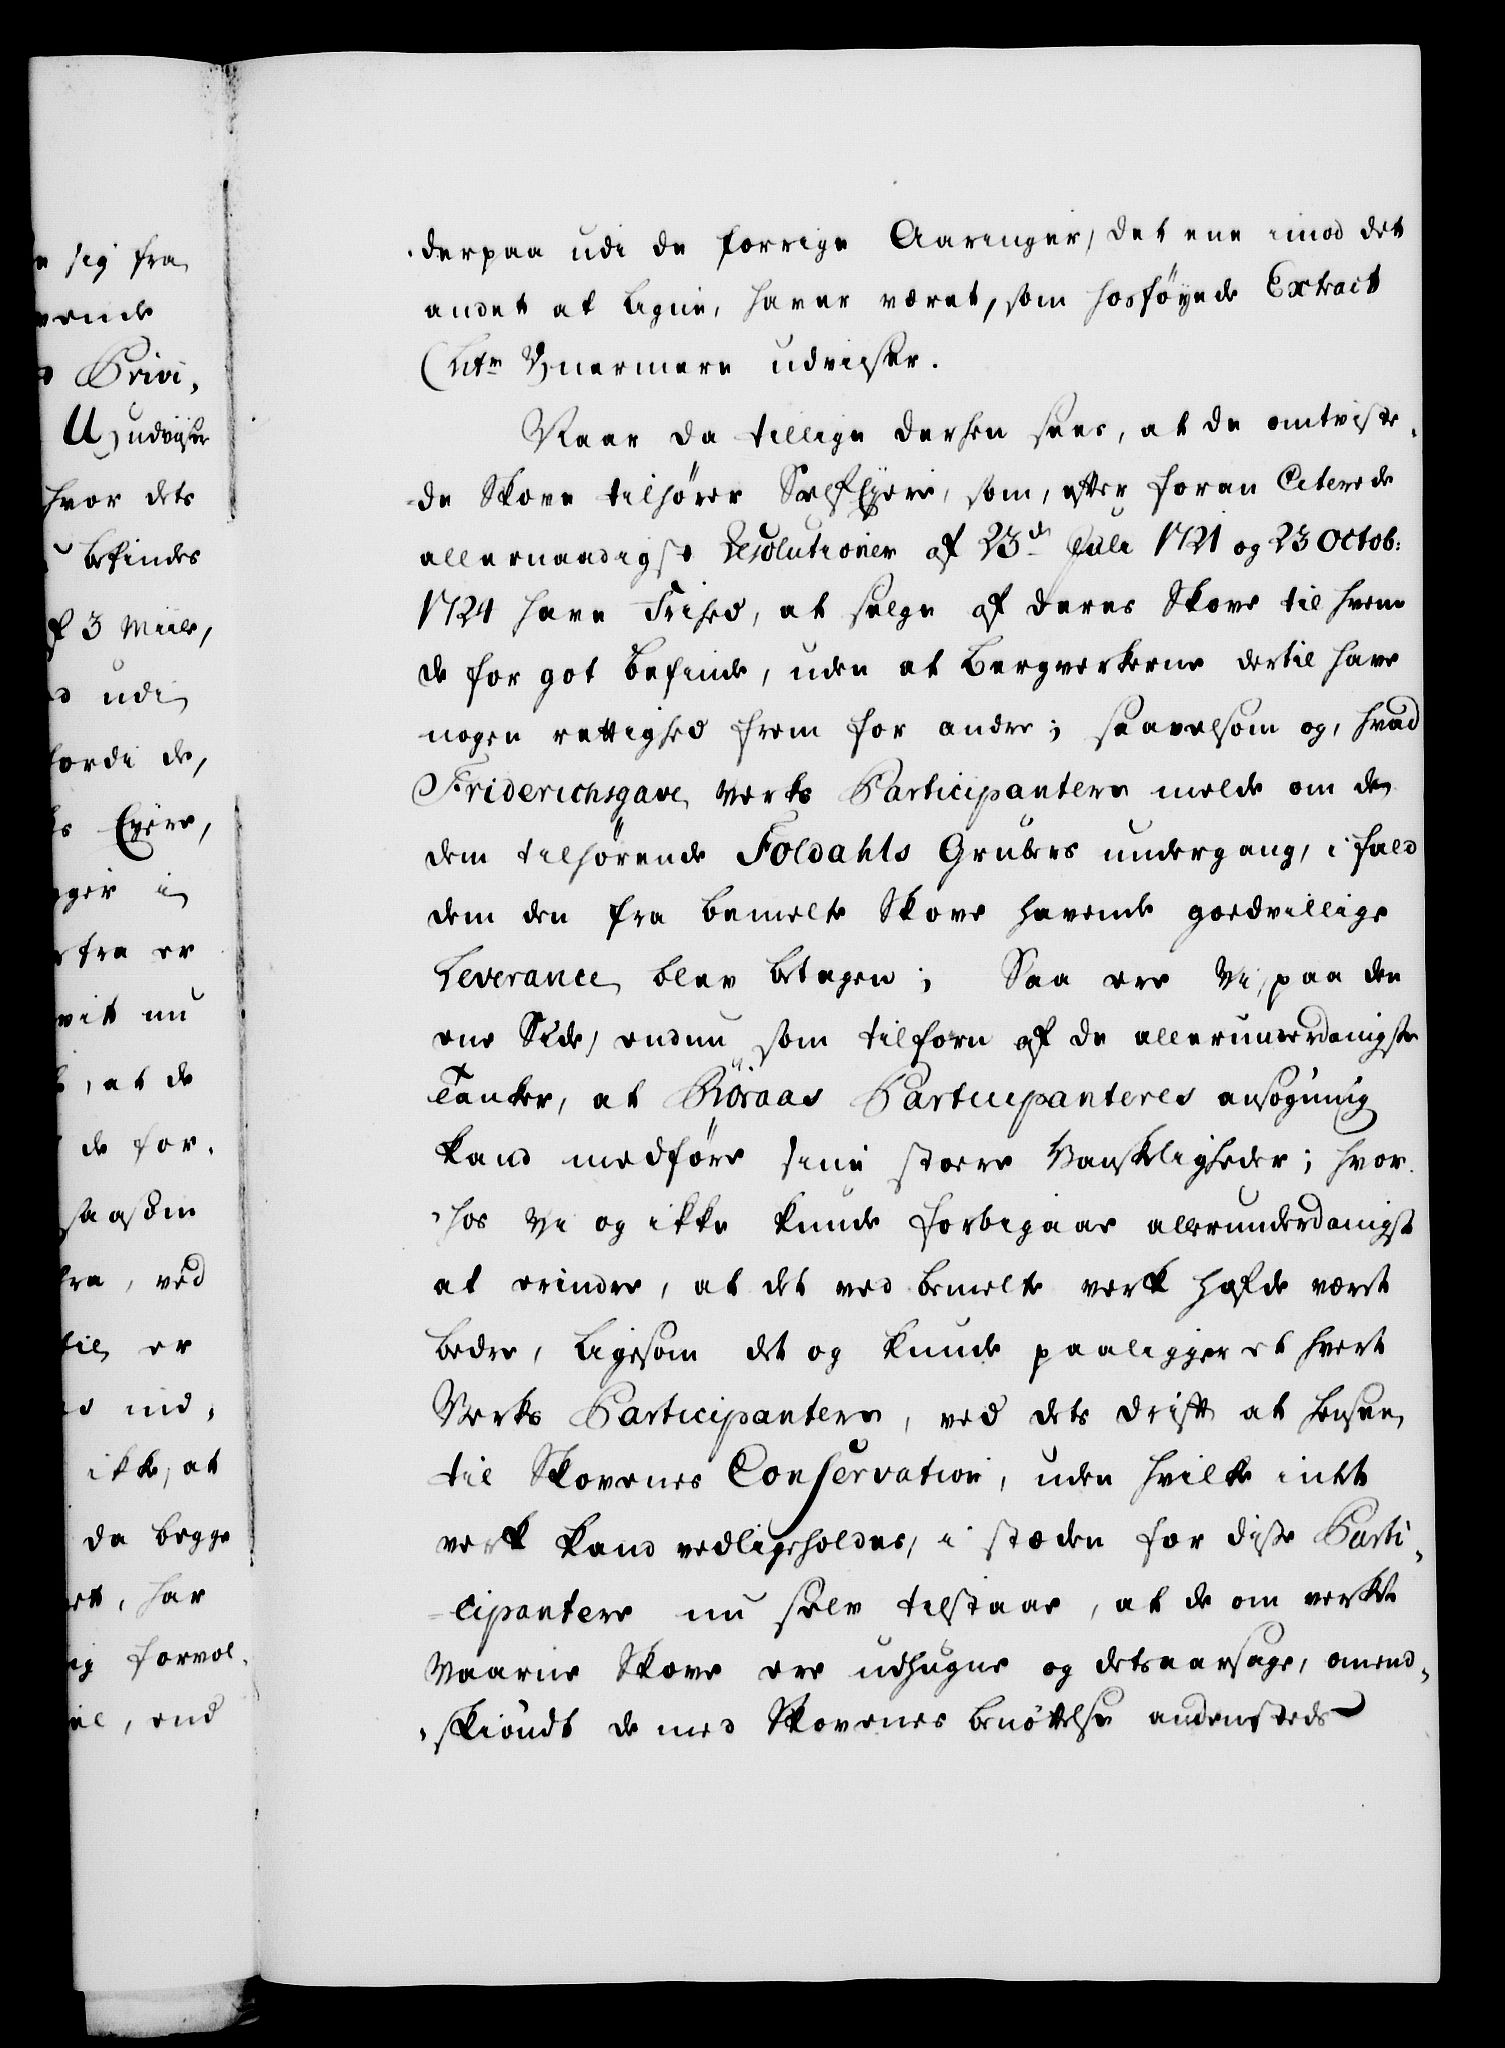 e sig fra
vende
Privi,
U) udviser
hvor dets
befindes
f 3 Miile,
udi
fordi de,
Eyere,
i
fra er
vit nu
, at de
de for,
saasom
fra, ved
til er
ind,
ikke, at
da begge
ett, har
ig forvol,
, end
derpaa udi de forrige Aaringer, det ene imod det
andet at ligne, haver været, som hosføyede Extract
(Litr Y nærmere udviser.
Naar da tillige dershen sees, at de omtviste,
de Skove tilhører SelfEyere, som, efter foran Citerede
allernaadigste Resolutioner af 23de Juli 1721 og 23 Octob:
1724 have Frihed, at selge af deres Skove til hvem
de for got befinde, uden at Bergverkerne dertil have
nogen rettighed frem for andre; saavelsom og, hvad
Friderichsgave Verks Participantere melde om den
dem tilhørende Foldahls Grubes undergang, i fald
dem den fra bemelte Skove havende goedvillige
Leverance blev betagen; Saa ere Vi, paa den
ene Side, endnu som tilforn af de allerunderdanigste
Tanker, at Röraas Participanteres ansøgning
kand medføre sine stoere Vanskeligheder; hvor,
hos Vi og ikke kunde forbigaae allerunderdanigst
at erindre, at det ved bemelte verk hafde værit
bedre, ligesom det og kunde paaligger et hvert
Verks Participantere, ved dets drift at hensee
til Skovenes Conservation, uden hvilke intet
verk kand vedligeholdes, i stæden for disse Parti,
cipantere nu selv tilstaae, at de om verket
Vaarne Skove ere udhugne og detsaarsage, omend,
skiöndt de med Skovenes benøttelse andensteds